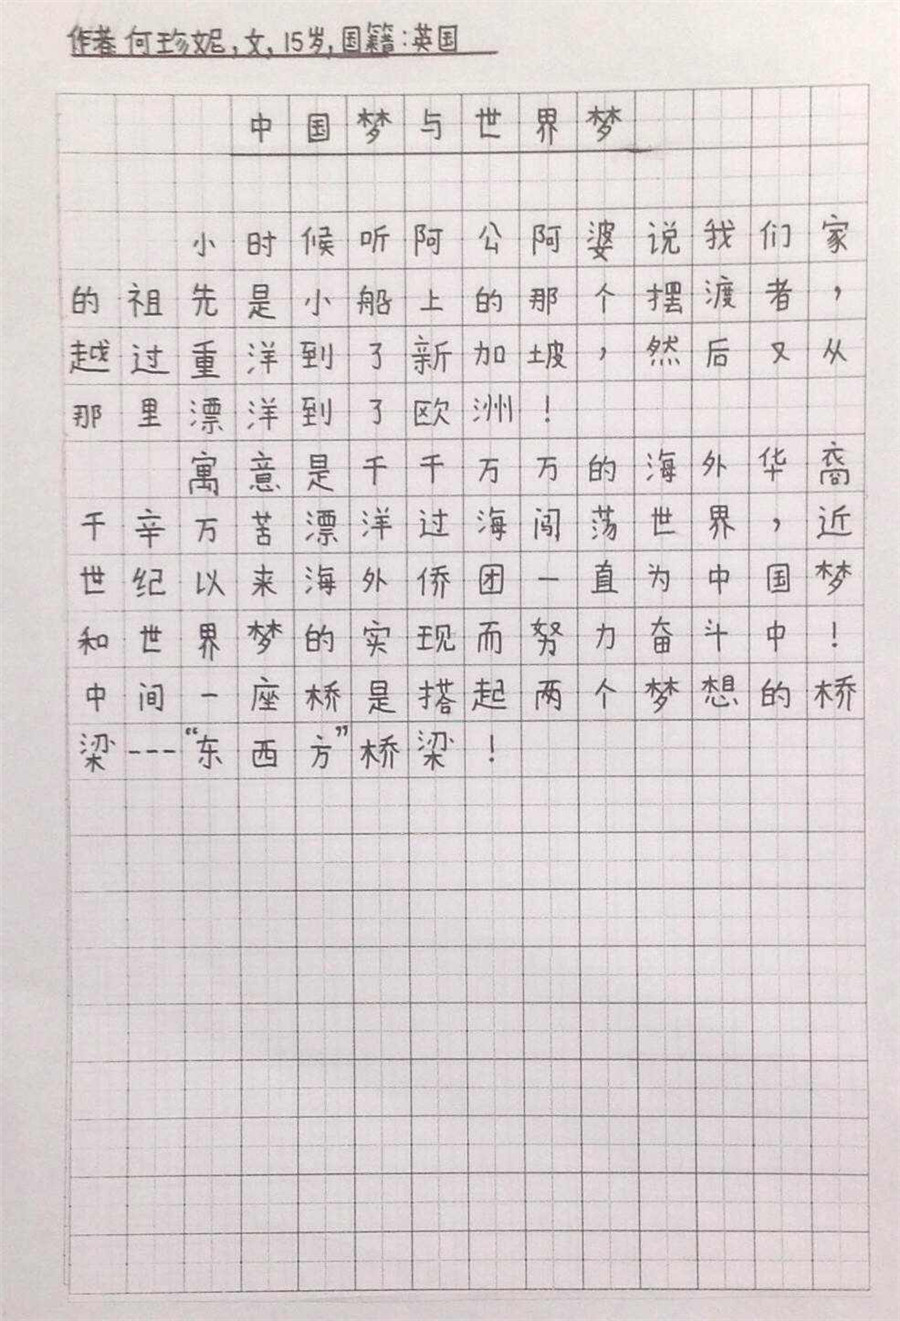 作者何珍妮,女,15岁,国籍:英国
中国梦与世界梦
小时候听阿公阿婆说我们家
的祖先是小船上的那个摆渡者,
越过重洋到了新加坡,然后又从
那里漂洋到了欧洲!
寓意是千千万万的海外华裔
千辛万苦漂洋过海闯荡世界,近
世纪以来海外侨团一直为中国梦
和世界梦的实现而努力奋斗中!
中间一座桥是搭起两个梦想的桥
梁---“东西方”桥梁!